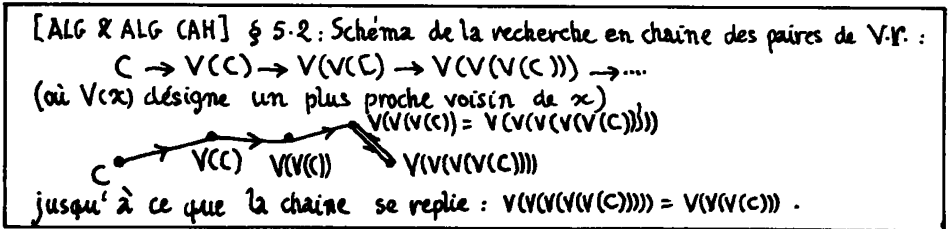 [ALG & ALG CAH] § 5.2 : Schéma de la recherche en chaine des paires de V.r. :
C → V(C) → V(V(C) → V(V(V(C))) → ....
(où V(x) désigne un plus proche voisin de x)
V(V(V(C)) = V(V(V(V(V(C)))))
C V(C) V(V(C)) V(V(V(V(C))))
jusqu'à ce que la chaine se replie : V(V(V(V(V(C))))) = V(V(V(C))) .